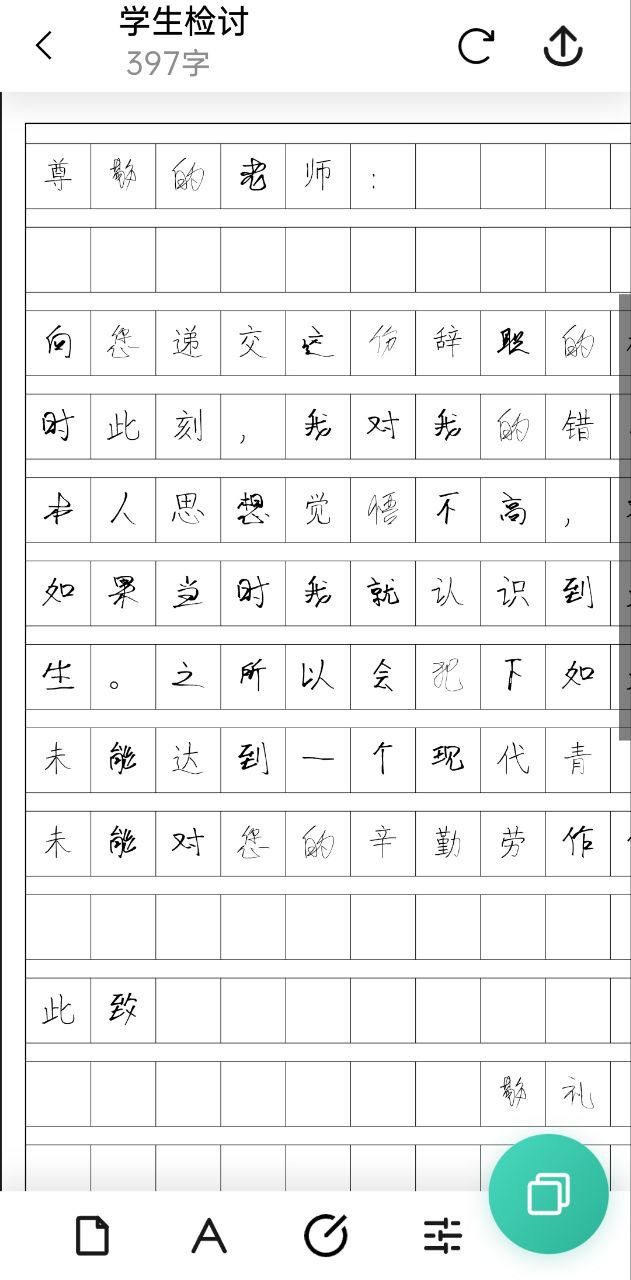 学生检讨
397字
尊敬的老师：
向您递交这份辞职的
时此刻，我对我的错
本人思想觉悟不高，
如果当时我就认识到
生。之所以会犯下如
未能达到一个现代青
未能对您的辛勤劳作
此致
敬礼